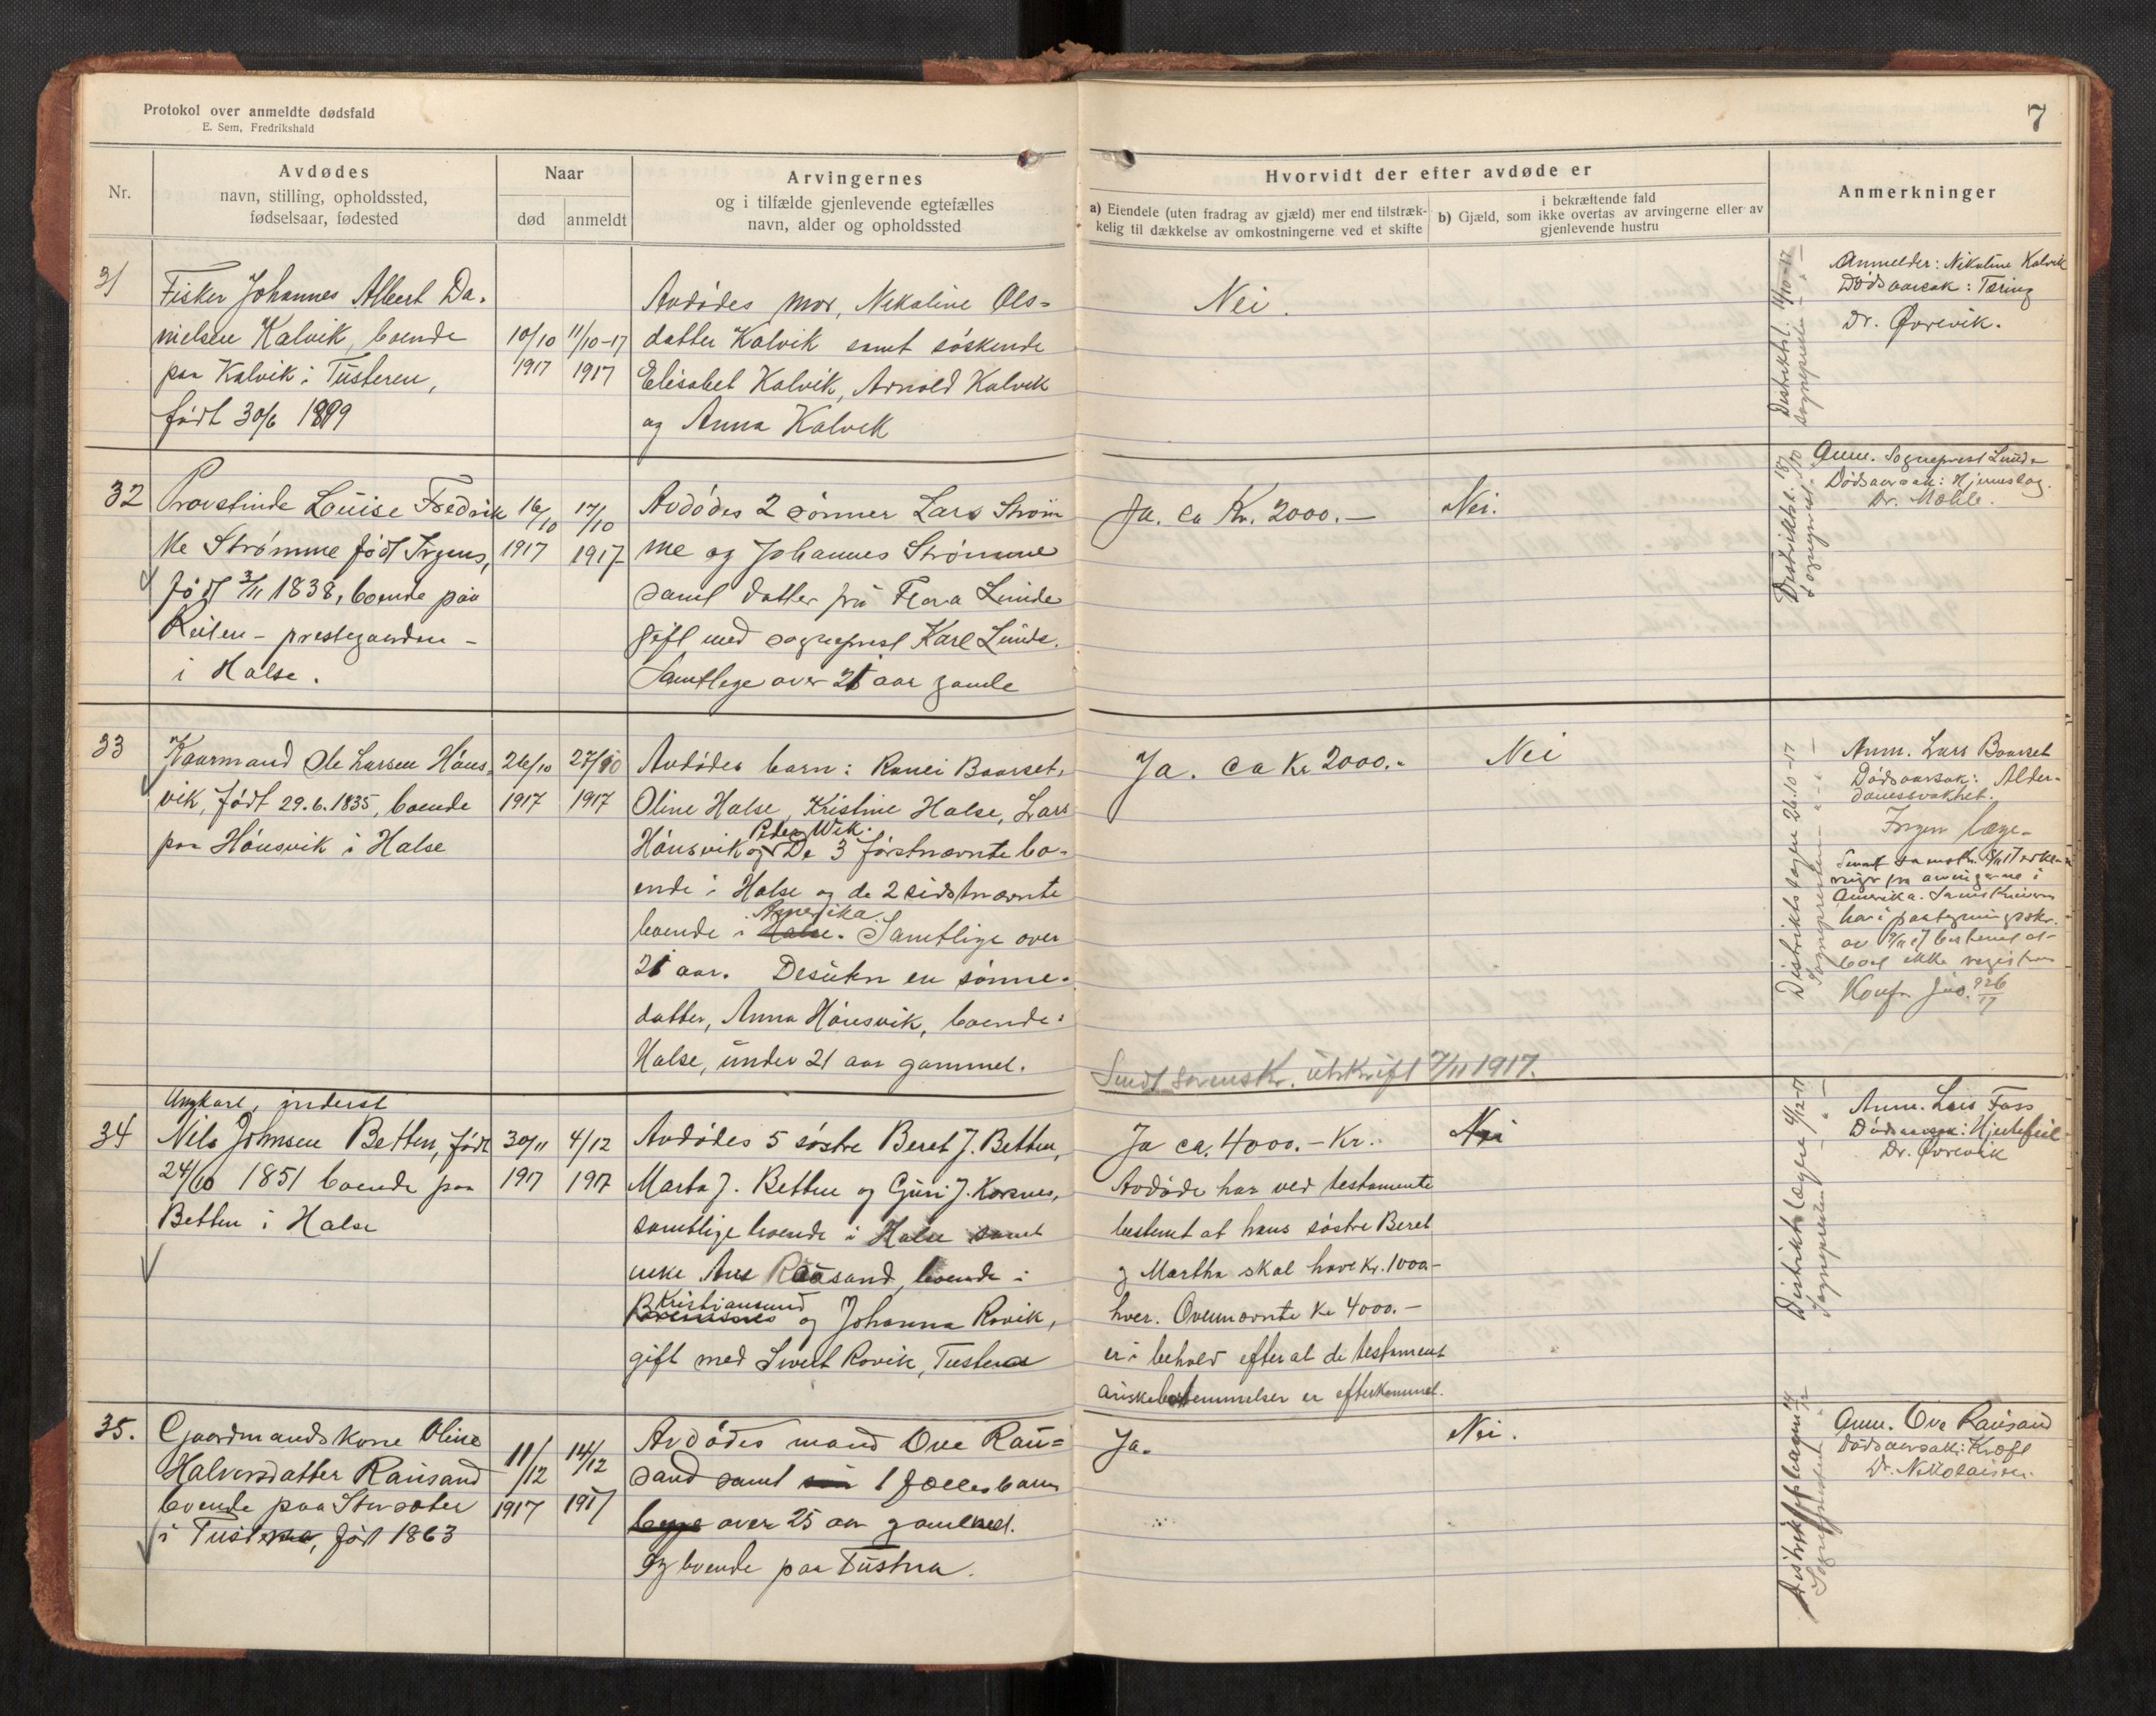 Protokol over anmeldte dødsfald
E. Sem, Fredrikshald
7
Nr.
Avdødes
navn, stilling, opholdssted,
fødselsaar, fødested
Naar
død
anmeldt
Arvingernes
og i tilfælde gjenlevende egtefælles
navn, alder og opholdssted
Hvorvidt der efter avdøde er
a) Eiendele (uten fradrag av gjæld) mer end tilstræk-
kelig til dækkelse av omkostningerne ved et skifte
i bekræftende fald
b) Gjæld, som ikke overtas av arvingerne eller av
gjenlevende hustru
Anmerkninger
31
Fisker Johannes Albert Da-
nielsen Kalvik, boende
paa Kalvik i Tusteren,
født 30/6 1899
10/10
1917
11/10-17
1917
Avdødes mor, Nekoline Ols-
datter Kalvik samt søskende
Elisabet Kalvik, Arnold Kalvik
og Anna Kalvik
Nei.
Distriktsl. 11/10-17
Sognepresten - " -
Anmelder: Nikoline Kalvik
Dødsaarsak: Tæring
Dr. Øvrevik.
32
Provstinde Louise Fredrik
ke Strømme født Irgens,
født 3/11 1838, boende paa
Reiten - prestegaarden -
i Halse.
16/10
1917
17/10
1917
Avdødes 2 sønner Lars Strøm
me og Johannes Strømme
samt datter fru Flora Lunde
gift med sogneprest Karl Lunde.
Samtlege over 21 aar gamle
Ja. ca Kr. 2000.-
Nei.
Distriktsl. 18/10
Sogneprest.
Anm. Sogneprest Lunde
Dødsaarsak: Hjerneslag.
Dr. Møhle.
33
Kaarmand Ole Larsen Høns-
vik, født 29.6.1835, boende
paa Hønsvik i Halse
26/10
1917
27/10
1917
Avdødes barn: Ranei Baarset,
Oline Halse, Kristine Halse, Lars
Peder Wik.
Hønsvik og De 3 førstnævnte bo-
ende i Halse og de 2 sidstnævnte
Amerika.
boende i Halse. Samtlige over
21 aar. Desuten en sønne-
datter, Anna Hønsvik, boende i
Halse, under 21 aar gammel.
Ja. ca Kr 2000.-
Nei
Sendt sorenskr. utskrift 7/11 1917.
Distriktslægen 26.10-17
Sognepresten - " -
Anm. Lars Baarset
Dødsaarsak: Alder-
domssvakhet.
Irgen læge
Amerika. Sorenskriveren
har i paategningsskr.
boet ikke registreres
Konf. Jno. 926/17
34
Ungkarl, inderst
Nils Johnsen Betten, født
24/10 1851 boende paa
Betten i Halse
30/11
1917
4/12
1917
Avdødes 5 søstre Beret J. Betten,
Marta J. Betten og Guri J. Korsnes,
samtlige boende i Halse samt
enke Ane Rausand, boende i
Kristiansund
Bremsnes og Johanna Rovik,
gift med Sivert Rovik, Tusteren
Ja ca. 4000.- Kr..
Avdøde har ved testamente
bestemt at hans søstre Beret
og Martha skal have Kr. 1000-
hver. Ovennævnte Kr 4000.-
er i behold efter at de testament
ariske bestemmelser er efterkommet.
Nei
Distriktslægen 4/12-17
Sognepresten - " -
Anm. Lars Foss
Dødsaarsak: Hjertefeil
Dr. Øvrevik
35.
Gaardmandskone Oline
Halvorsdatter Rausand
boende paa Storsæter
i Tustern, født 1863
11/12
1917
14/12
1917
Avdødes mand Ove Rau=
sand samt 1 fællesbarn
begge over 25 aar gammel.
og boende paa Tustern.
Ja.
Nei.
Distriktslægen 14/12
Sognepresten
Anm. Ove Rausand
Dødsaarsak: Kræft
Dr. Nikolaisen.